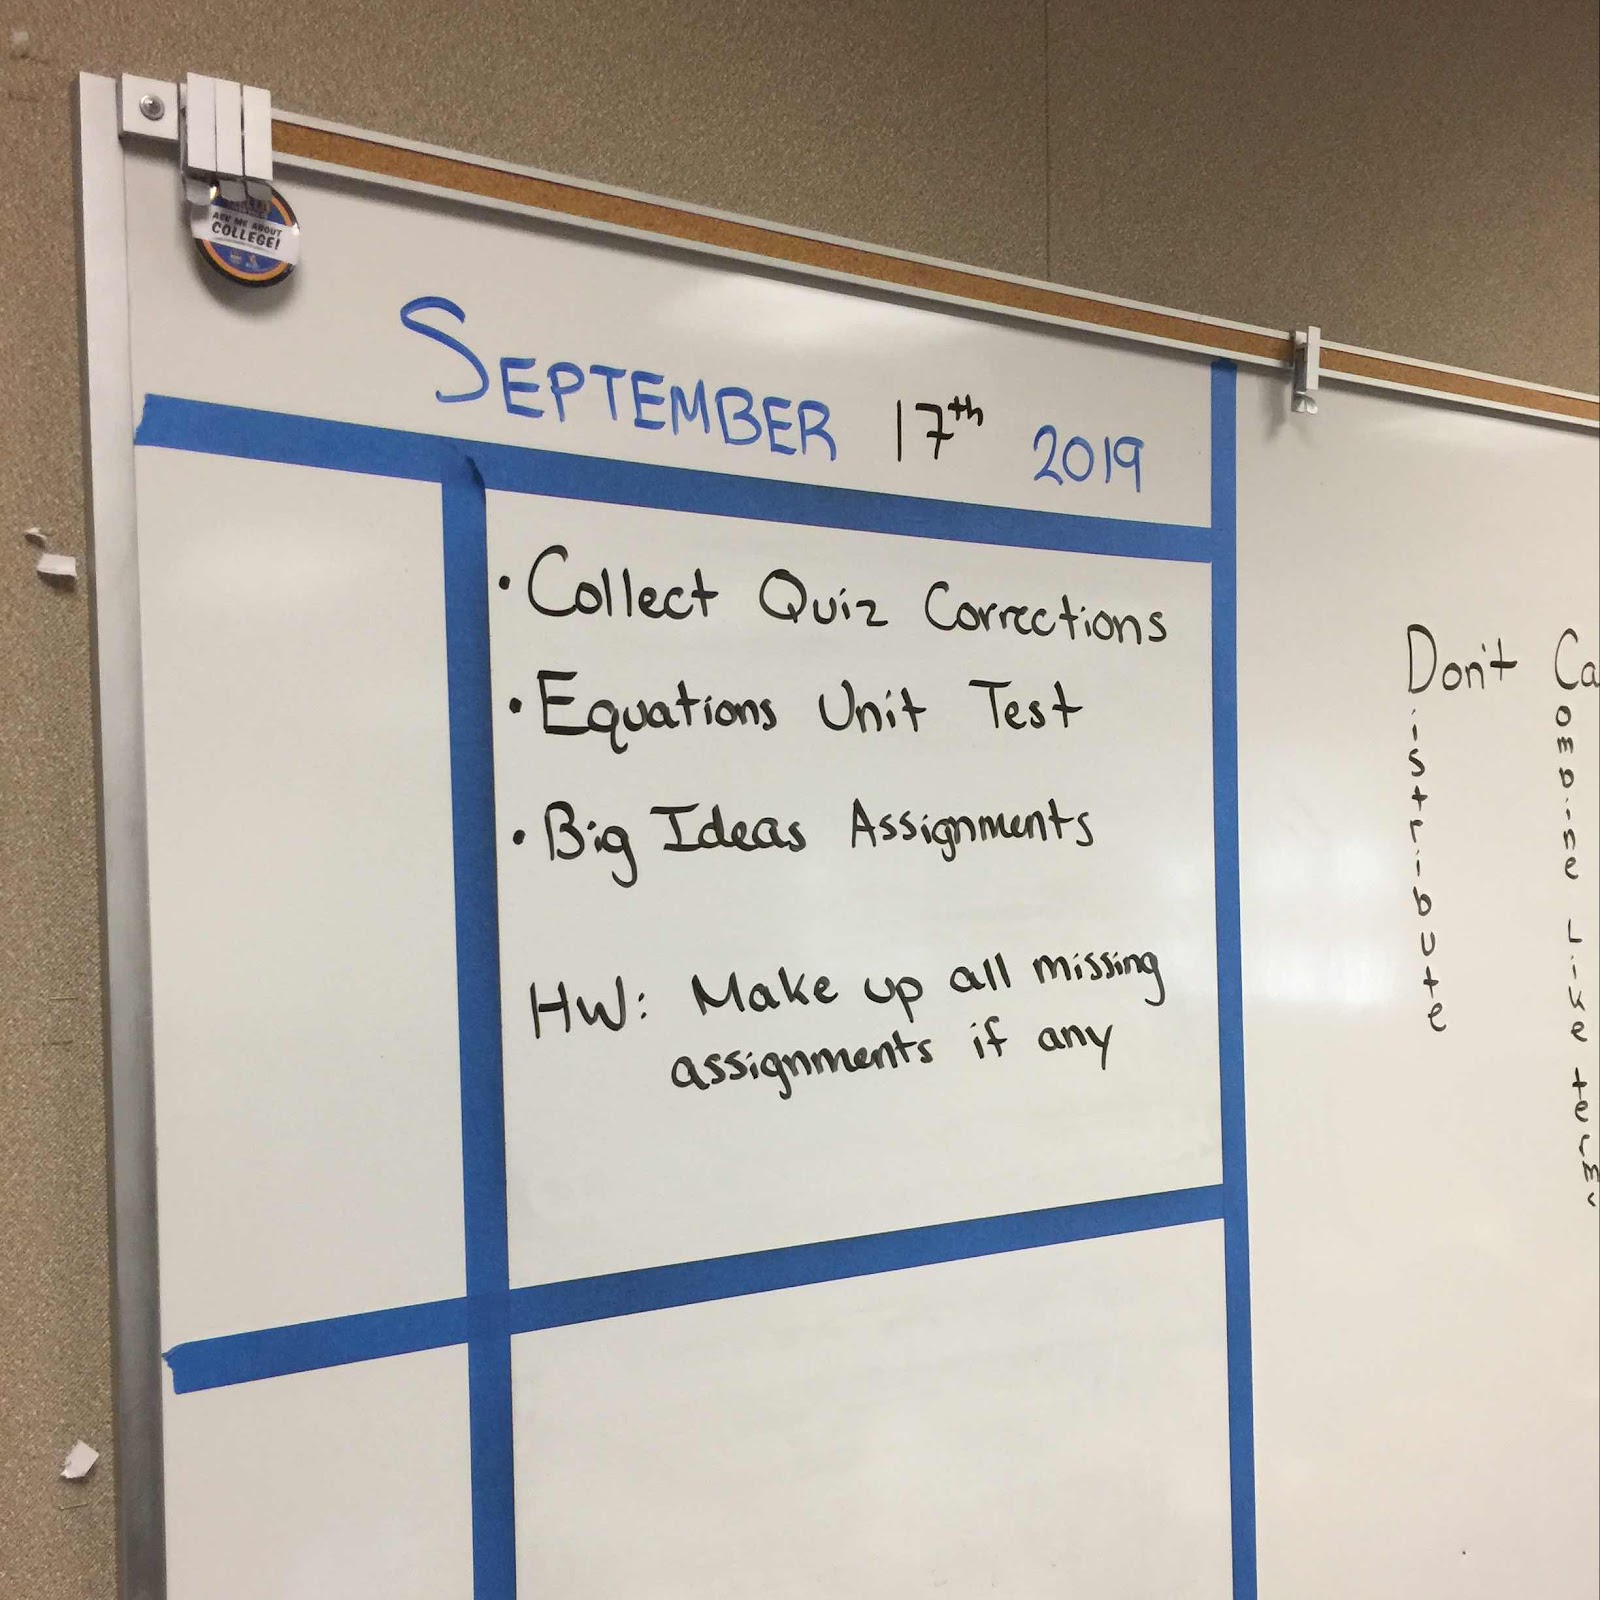 ASK ME ABOUT
COLLEGE!
SEPTEMBER 17th 2019
• Collect Quiz Corrections
• Equations Unit Test
• Big Ideas Assignments
HW: Make up all missing
assignments if any
Don't
istribute
Ca
ombine Like terms